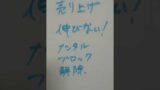 売り上げ
伸びない!
メンタル
ブロック
解除